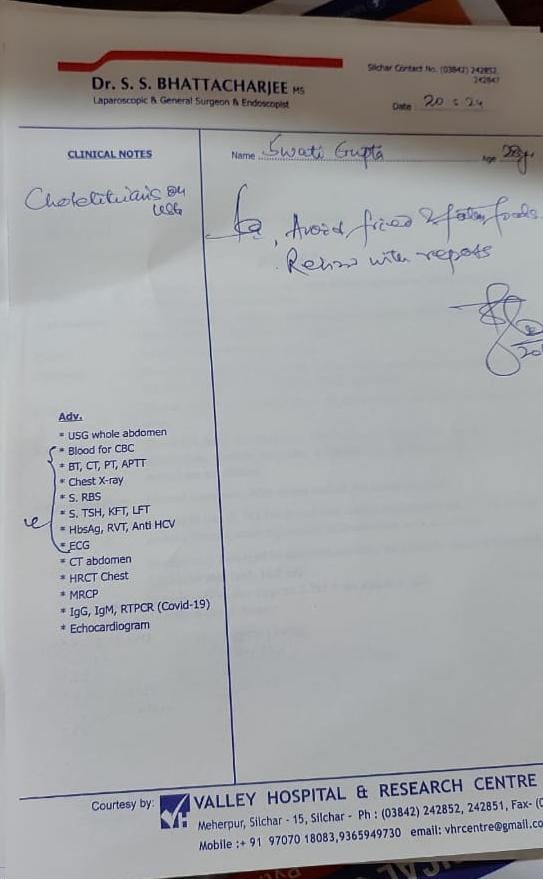 Dr. S. S. BHATTACHARJEE MS
Laparoscopic & General Surgeon & Endoscopist
Silchar Contact No. (03842) 242852,
242847
Date 20 5 24
CLINICAL NOTES
Name Swati Gupta Age 28y
Cholelithiasis on
USG
Avoid fried & fatty foods
Review with reports
Adv.
* USG whole abdomen
* Blood for CBC
* BT, CT, PT, APTT
* Chest X-ray
* S. RBS
* S. TSH, KFT, LFT
* HbsAg, RVT, Anti HCV
* ECG
* CT abdomen
* HRCT Chest
* MRCP
* IgG, IgM, RTPCR (Covid-19)
* Echocardiogram
Courtesy by: VH VALLEY HOSPITAL & RESEARCH CENTRE
Meherpur, Silchar - 15, Silchar - Ph : (03842) 242852, 242851, Fax- (0
Mobile :+ 91 97070 18083,9365949730 email: vhrcentre@gmail.co